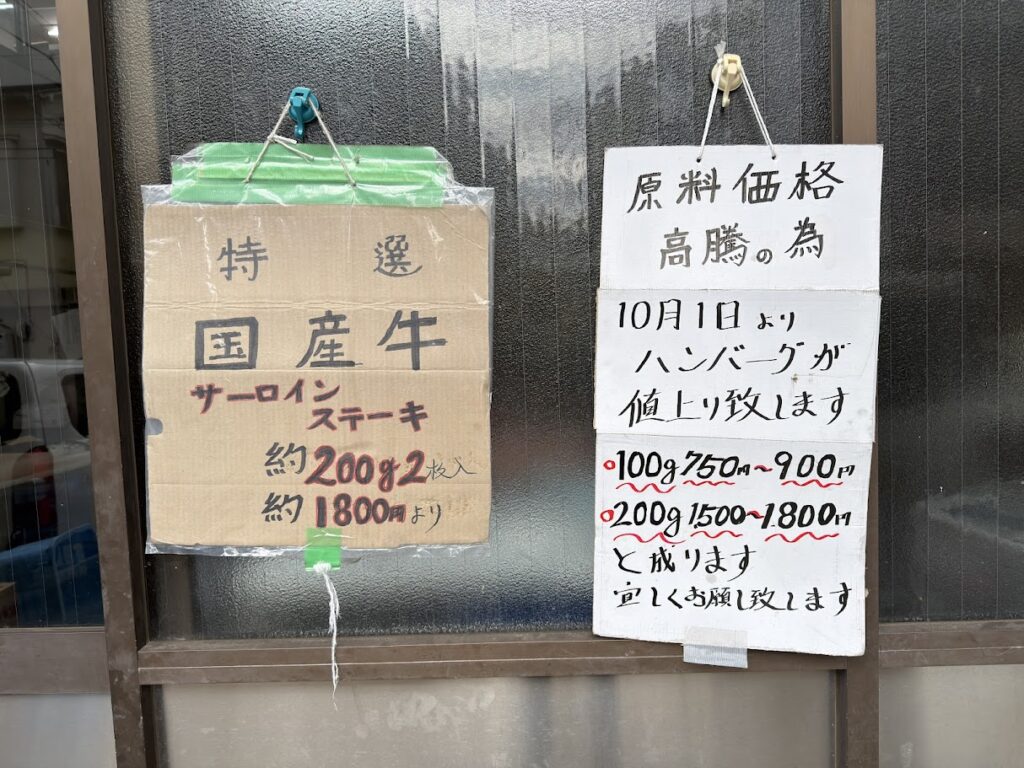 特選
国産牛
サーロイン
ステーキ
約200g2枚入
約1800円より
原料価格
高騰の為
10月1日より
ハンバーグが
値上り致します
100g750円～900円
200g1500～1800円
と成ります
宜しくお願し致します